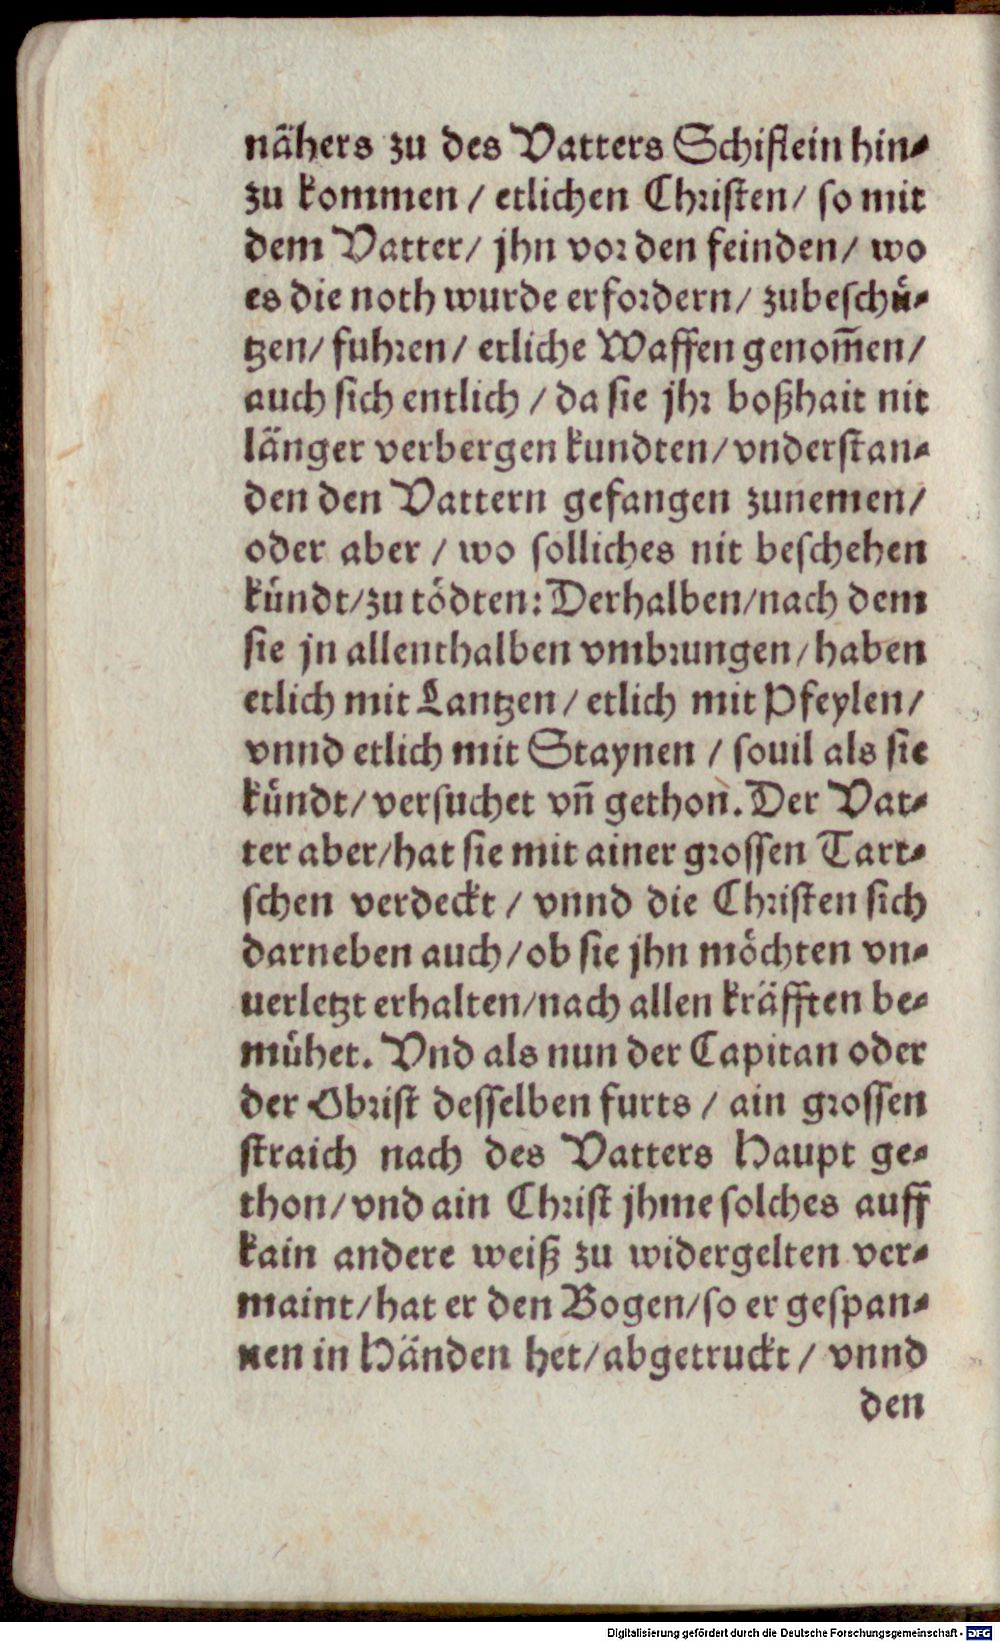 nähers zu des Vatters Schiflein hin⸗
zu kommen / etlichen Christen / so mit
dem Vatter / jhn vor den feinden / wo
es die noth wurde erfordern / zubeschü⸗
tzen / fuhren / etliche Waffen genom̅en /
auch sich entlich / da sie jhr boßhait nit
länger verbergen kundten / vnderstan⸗
den den Vattern gefangen zunemen /
oder aber / wo solliches nit beschehen
kündt / zu tödten: Derhalben / nach dem
sie jn allenthalben vmbrungen / haben
etlich mit Lantzen / etlich mit Pfeylen /
vnnd etlich mit Staynen / souil als sie
kündt / versuchet vn̅ gethon. Der Vat⸗
ter aber / hat sie mit ainer grossen Tart⸗
schen verdeckt / vnnd die Christen sich
darneben auch / ob sie jhn möchten vn⸗
uerletzt erhalten / nach allen kräfften be⸗
mühet. Vnd als nun der Capitan oder
der Obrist desselben furts / ain grossen
straich nach des Vatters Haupt ge⸗
thon / vnd ain Christ jhme solches auff
kain andere weiß zu widergelten ver⸗
maint / hat er den Bogen / so er gespan⸗
nen in Händen het / abgetruckt / vnnd
den
Digitalisierung gefördert durch die Deutsche Forschungsgemeinschaft - DFG